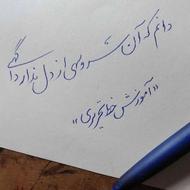 دانم که آن سروسهی از دل ندارد آگهی
«آموزش خط تحریری»